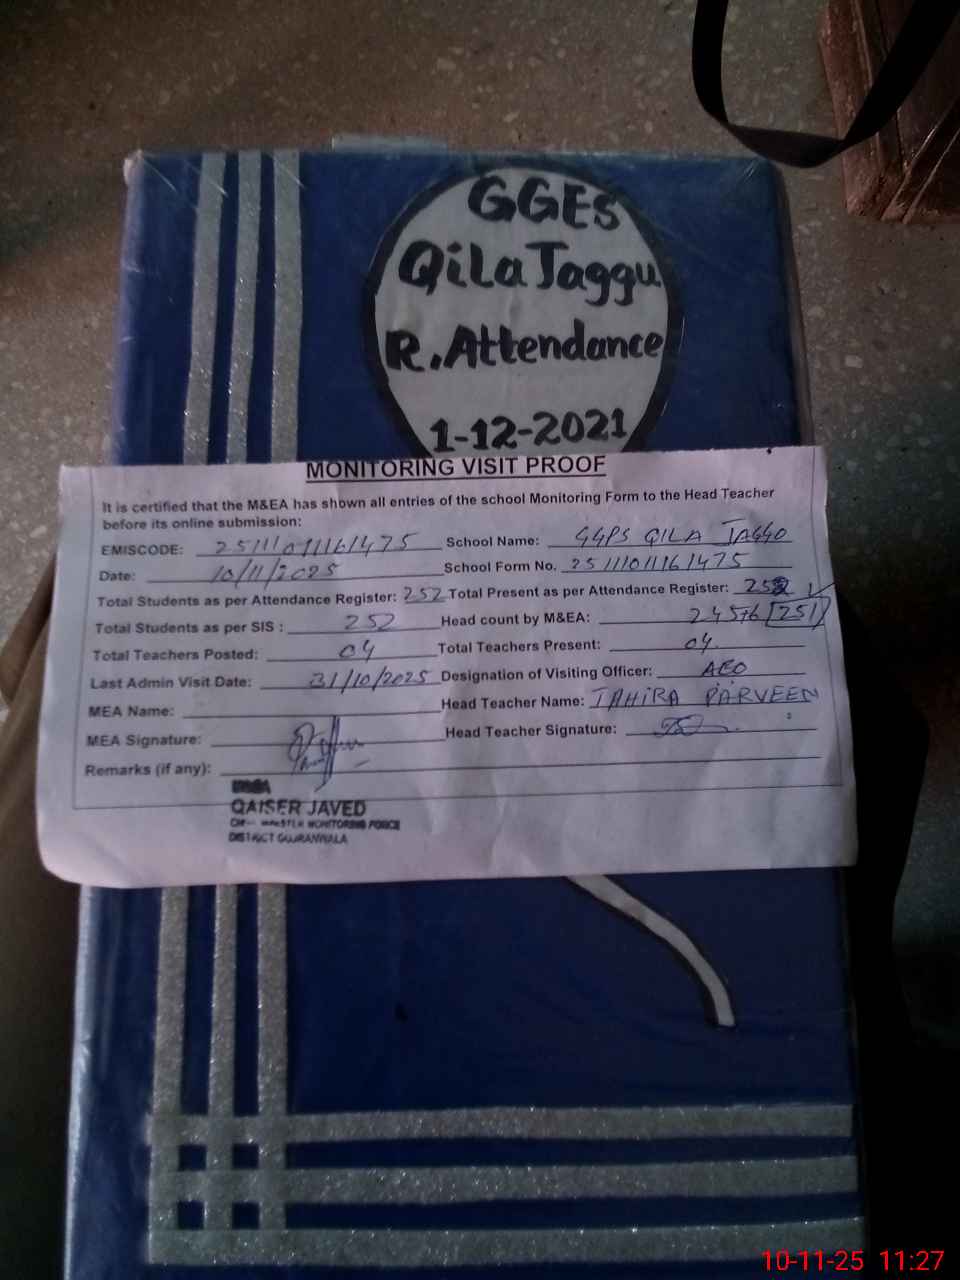 GGES
Qila Jaggu
R. Attendance
1-12-2021
MONITORING VISIT PROOF
It is certified that the M&EA has shown all entries of the school Monitoring Form to the Head Teacher
before its online submission:
EMISCODE: School Name: GGPS QILA JAGGO
Date: 10/11/2025 School Form No.
Total Students as per Attendance Register: 252 Total Present as per Attendance Register:
Total Students as per SIS : 252 Head count by M&EA: 251
Total Teachers Posted: 04 Total Teachers Present: 04
Last Admin Visit Date: 31/10/2025 Designation of Visiting Officer: AEO
MEA Name: Head Teacher Name: TAHIRA PARVEEN
MEA Signature: Head Teacher Signature:
Remarks (if any):
QAISER JAVED
MONITORING FORCE
DISTRICT GUJRANWALA
10-11-25 11:27